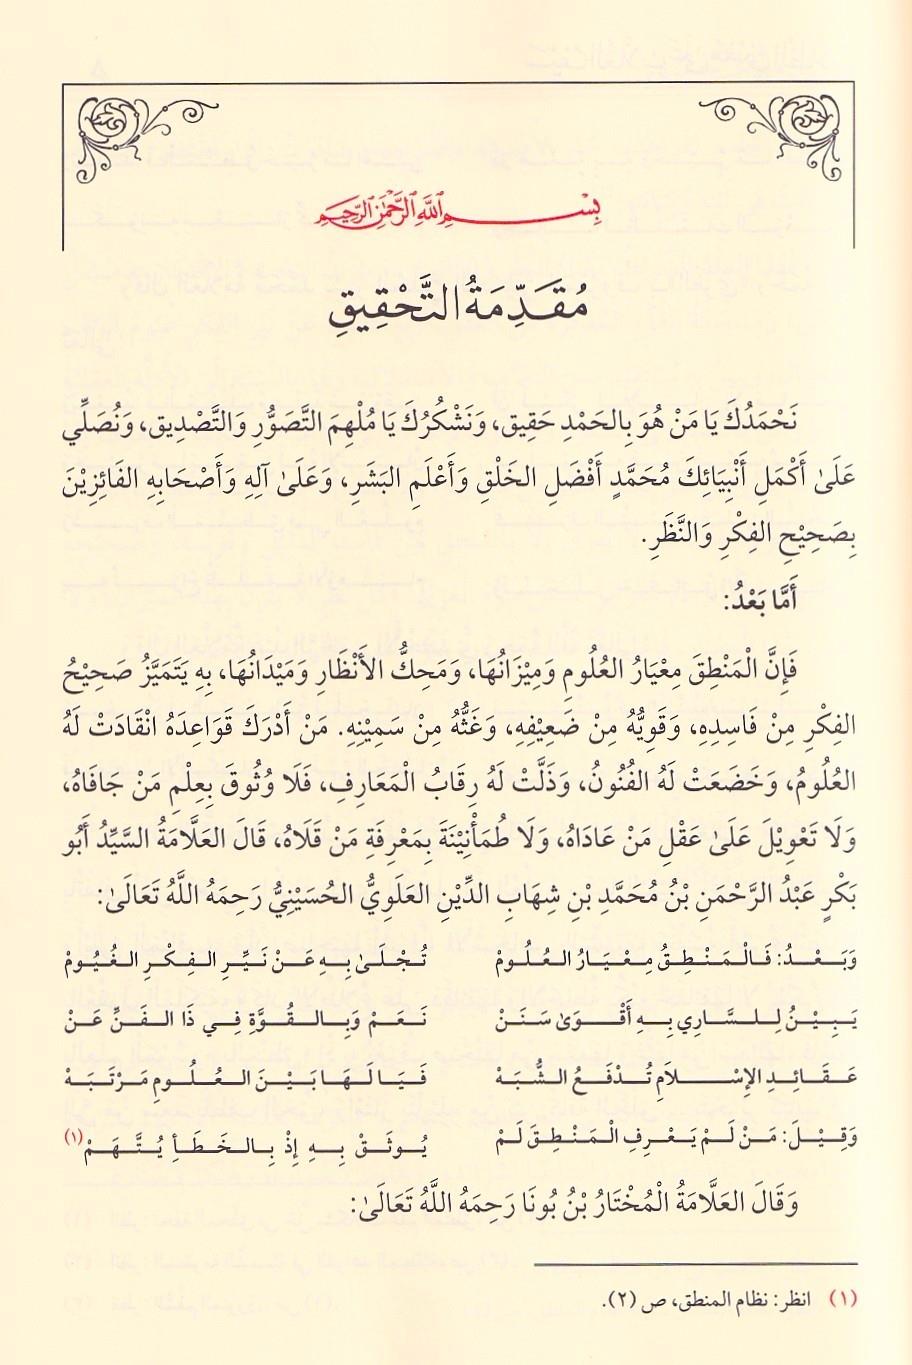 بِسْمِ اللَّهِ الرَّحْمَٰنِ الرَّحِيمِ
مُقَدِّمَةُ التَّحْقِيقِ
نَحْمَدُكَ يَا مَنْ هُوَ بِالحَمْدِ حَقِيق، وَنَشْكُرُكَ يَا مُلْهِمَ التَّصَوُّرِ وَالتَّصْدِيق، وَنُصَلِّي
عَلَىٰ أَكْمَلِ أَنْبِيَائِكَ مُحَمَّدٍ أَفْضَلِ الخَلْقِ وَأَعْلَمِ البَشَرِ، وَعَلَىٰ آلِهِ وَأَصْحَابِهِ الفَائِزِيْنَ
بِصَحِيْحِ الفِكْرِ وَالنَّظَرِ.
أَمَّا بَعْدُ:
فَإِنَّ الْمَنْطِقَ مِعْيَارُ العُلُومِ وَمِيْزَانُهَا، وَمَحِكُّ الأَنْظَارِ وَمَيْدَانُهَا، بِهِ يَتَمَيَّزُ صَحِيْحُ
الفِكْرِ مِنْ فَاسِدِهِ، وَقَوِيُّهُ مِنْ ضَعِيْفِهِ، وَغَثُّهُ مِنْ سَمِيْنِهِ. مَنْ أَدْرَكَ قَوَاعِدَهُ انْقَادَتْ لَهُ
العُلُومُ، وَخَضَعَتْ لَهُ الفُنُونُ، وَذَلَّتْ لَهُ رِقَابُ الْمَعَارِفِ، فَلَا وُثُوقَ بِعِلْمِ مَنْ جَافَاهُ،
وَلَا تَعْوِيْلَ عَلَىٰ عَقْلِ مَنْ عَادَاهُ، وَلَا طُمَأْنِيْنَةَ بِمَعْرِفَةِ مَنْ قَلَاهُ، قَالَ العَلَّامَةُ السَّيِّدُ أَبُو
بَكْرٍ عَبْدُ الرَّحْمَنِ بْنُ مُحَمَّدِ بْنِ شِهَابِ الدِّيْنِ العَلَوِيُّ الحُسَيْنِيُّ رَحِمَهُ اللَّهُ تَعَالَىٰ:
وَبَعْدُ: فَالْمَنْطِقُ مِعْيَارُ العُلُومْ تُجْلَىٰ بِهِ عَنْ نَيِّرِ الفِكْرِ الغُيُومْ
يَبِيْنُ لِلسَّارِي بِهِ أَقْوَىٰ سَنَنْ نَعَمْ وَبِالقُوَّةِ فِي ذَا الفَنِّ عَنْ
عَقَائِدِ الإِسْلَامِ تُدْفَعُ الشُّبَهْ فَيَا لَهَا بَيْنَ العُلُومِ مَرْتَبَهْ
وَقِيْلَ: مَنْ لَمْ يَعْرِفِ الْمَنْطِقَ لَمْ يُوثَقْ بِهِ إِذْ بِالخَطَأِ يُتَّهَمْ (١)
وَقَالَ العَلَّامَةُ الْمُخْتَارُ بْنُ بُونَا رَحِمَهُ اللَّهُ تَعَالَىٰ:
(١) انظر: نظام المنطق، ص (٢).